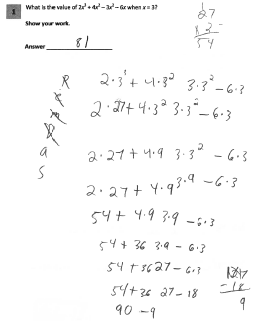 1 What is the value of 2x³ + 4x² – 3x² – 6x when x = 3?
Show your work.
Answer 81
27
x 2
54
P 2·3³ + 4·3² 3·3² – 6·3
2·27 + 4·3² 3·3² – 6·3
a 2·27 + 4·9 3·3² – 6·3
S
2·27 + 4·9 3·9 – 6·3
54 + 4·9 3·9 – 6·3
54 + 36 3·9 – 6·3
54 + 36 27 – 6·3
54 + 36 27 – 18
90 – 9
27
– 18
9